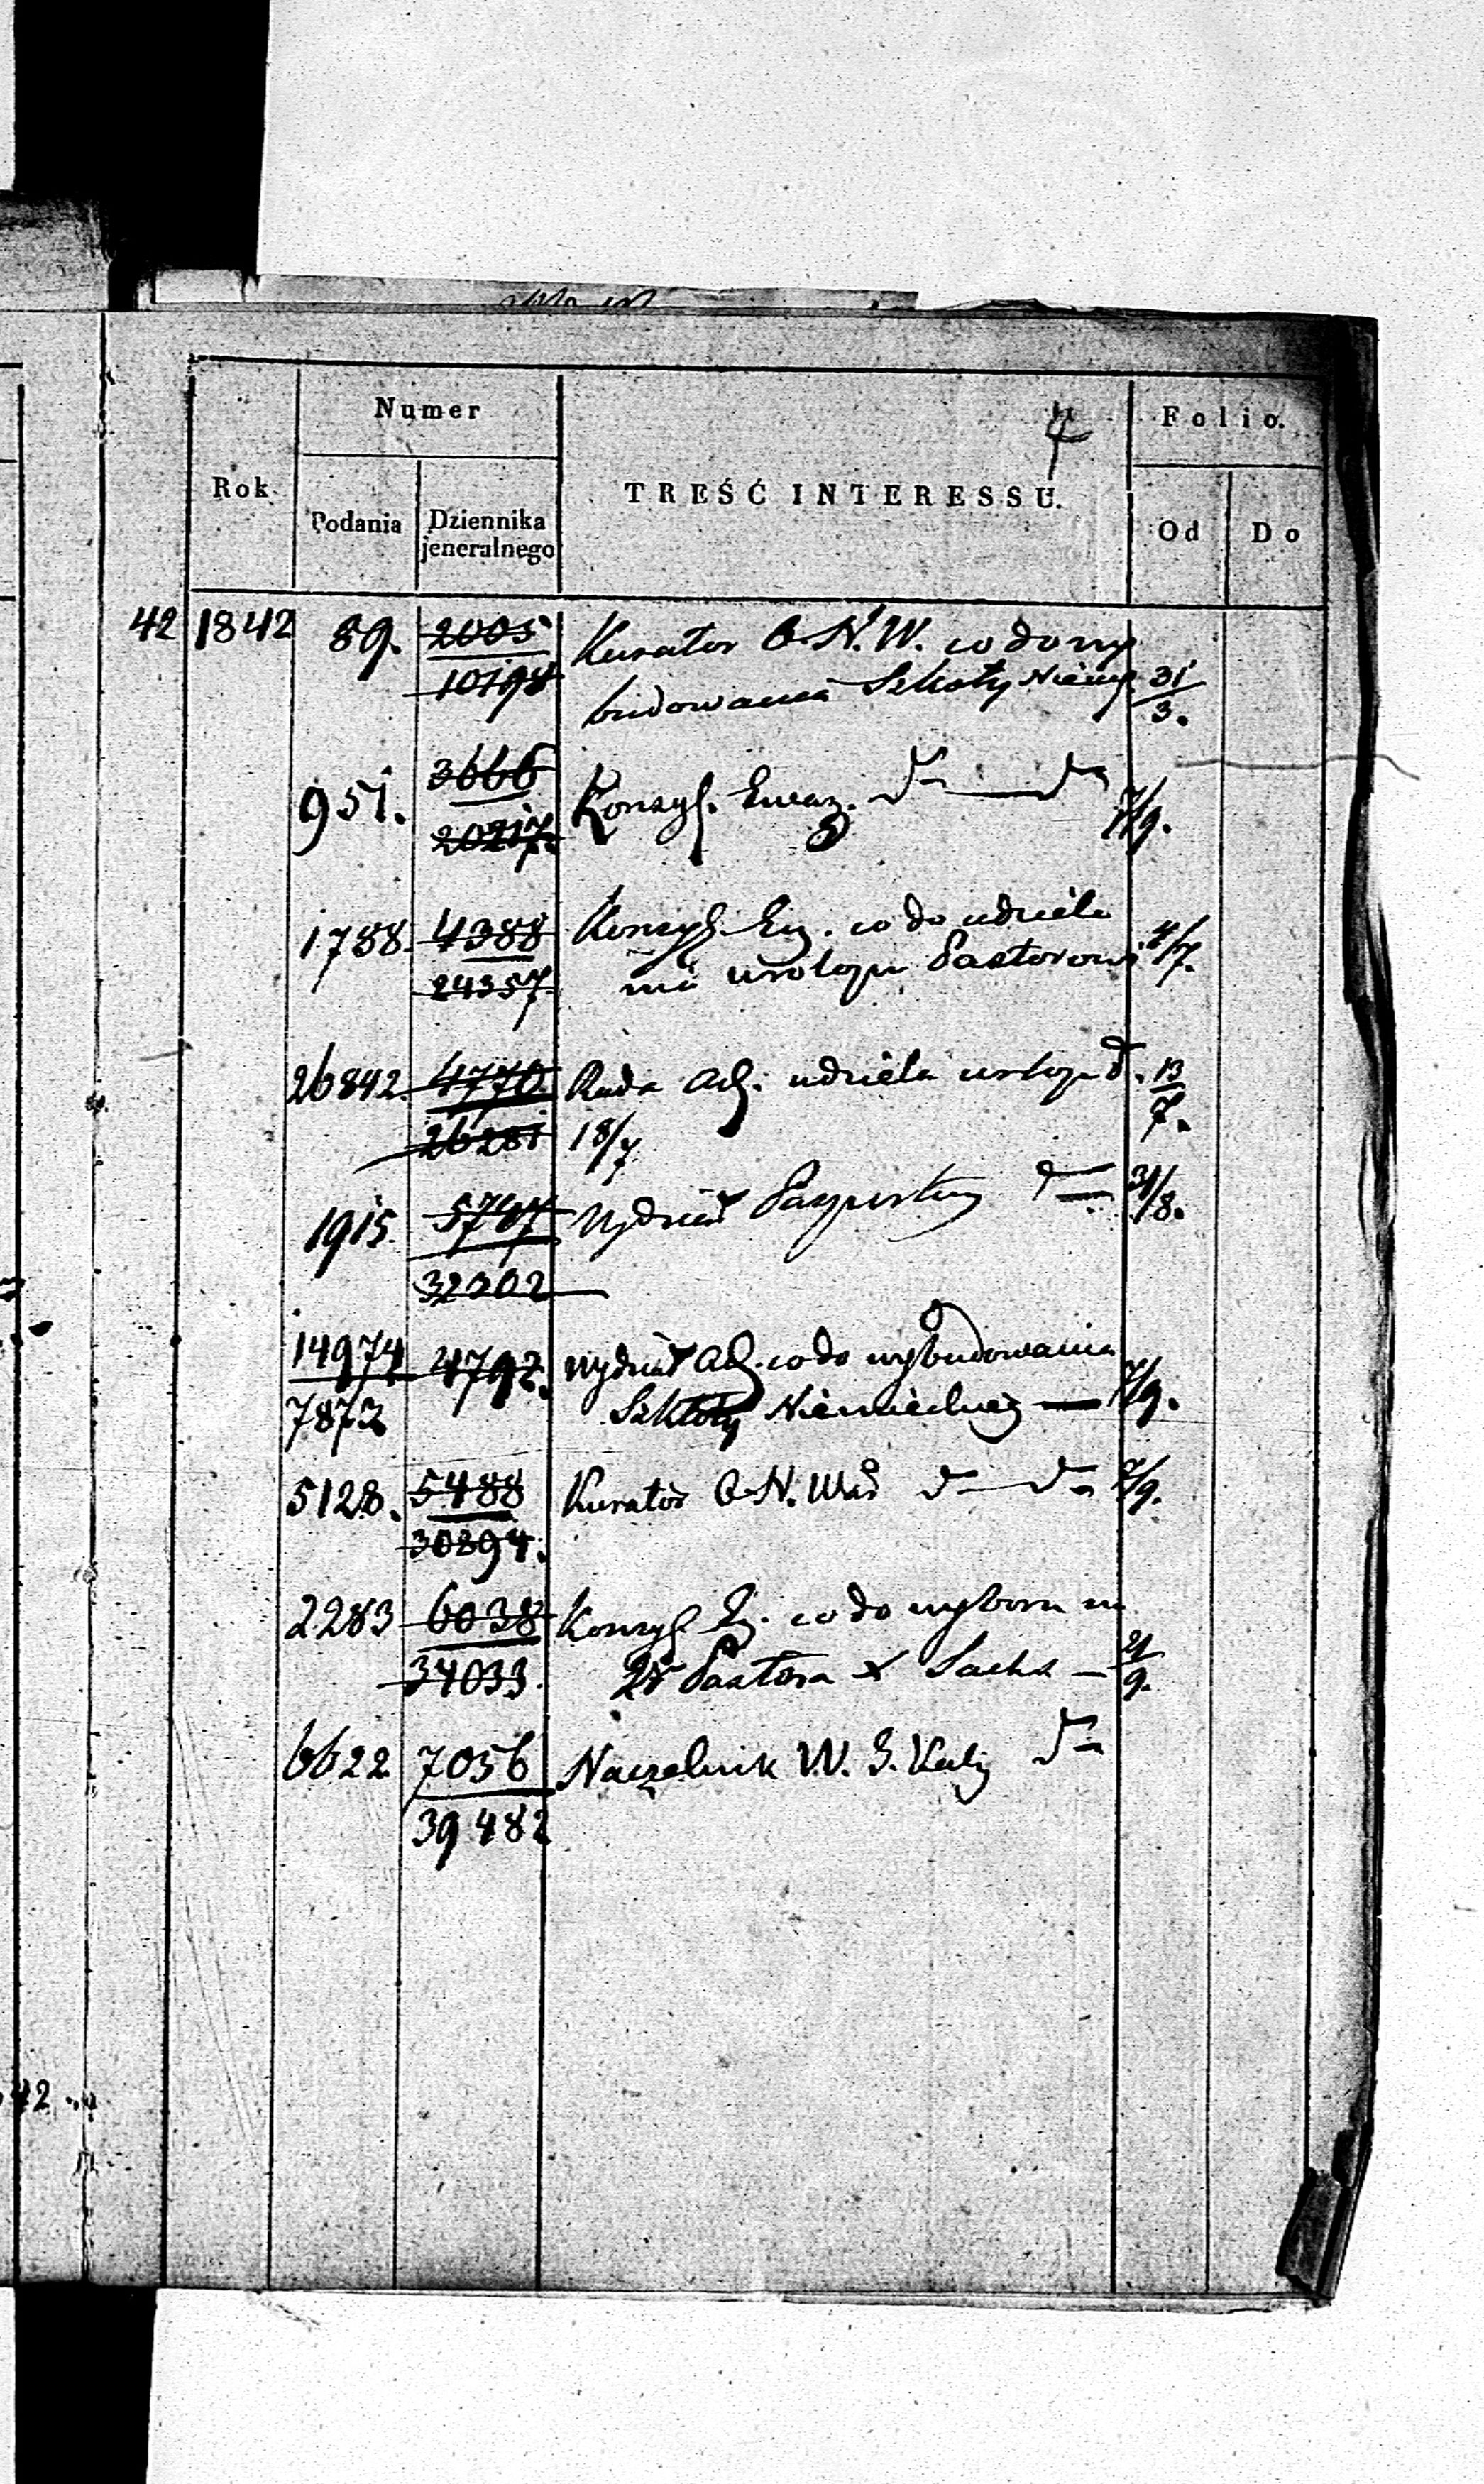 Numer
4
Folio.
Rok
Podania
Dziennika
jeneralnego
TREŚĆ INTERESSU.
Od
Do
42 1842 89. 2005 Kurator O. N. W. co do wy
10798 budowania Szkoły Niemy 31
3.
951. 3666 Konsys. Ewang. do do 7/9.
20217.
1788. 4388 Konsys. Ewg. co do udziele
24357 nia urlopu Pastorowi 4/7.
26842. 4770. Rada Adm. udziela urlopu do. 13
26281 18/7 7.
1915. 5747 Wydział Paszportowy do 31/8.
32202
14974 4792. Wydział Adm. co do wybudowania
7872 Szkoły Niemieckiej — 7/9.
5128. 5488 Kurator O. N. War do do 7/9.
30894.
2283 6038 Konsys Ew. co do wyboru na
34033. Pastora X Sachs — 21
9.
6622 7056 Naczelnik W. G. Kali do
39482
42